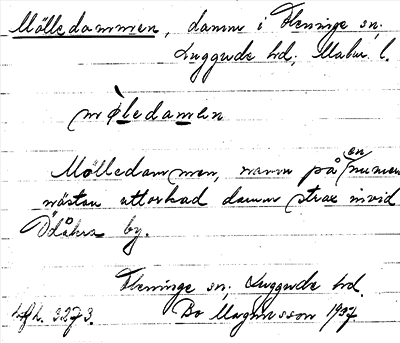 Mölledammen, damm i Fleninge sn,
Luggude hd; Malm. l.
mòledamen
Mölledammen, namn på en numera
nästan uttorkad damm strax invid
Ödåkra by.
Fleninge sn, Luggude hd.
3273. Bo Magnusson 1937